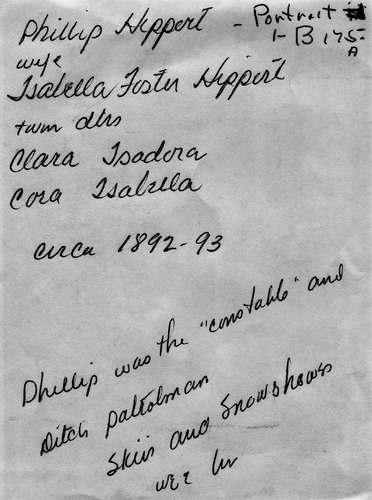 Phillip Hippert - Portrait
1-B175
A
wife
Isabella Foster Hippert
twin dtrs
Clara Isadora
Cora Isabella
circa 1892-93
Phillip was the "constable" and
Ditch patrolman
Skiis and Snowshoes